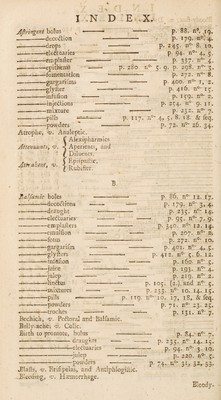 I N D E X.
Astringent bolus p. 88. n°. 19.
decoction p. 179. n°. 4.
drops p. 245. n° 8. 10.
electuaries p. 94. n° 4, 5.
emplaster p. 337. n° 4.
epithem p. 280. n° 5. 9. p. 208. n° 7.
fomentation p. 272. n° 8.
gargarism p. 400. n° 1, 2.
glyster p. 416. n° 15.
infusion p. 159. n° 2.
injections p. 254. n° 11.
mixture p. 232. n° 7.
pills p. 117. n° 4, 5, 8. 18. & seq.
powders p. 72. n° 26. 34.
Atrophæ, v. Analeptic.
Attenuants, v. { Alexipharmics
Aperients, and
Diluents.
Attrahent, v. { Epispastic,
Rubifier.
B.
Balsamic bolus p. 86. n° 12. 17.
decoctions p. 179. n° 3, 4.
draught p. 235. n° 14.
electuaries p. 95. n° 7, 9.
emplasters p. 340. n° 12. 14.
emulsion p. 207. n° 8.
fotus p. 272. n° 10.
gargarism p. 401. n° 4, 5.
glysters p. 412. n° 5, 6. 12.
infusion p. 160. n° 5.
juice p. 193. n° 4.
julep p. 219. n° 2.
linctus p. 105. (2.) and n° 5.
mixtures p. 233. n° 10. 14, 15.
pills p. 119. n° 10. 17, 18, & seq.
powders p. 71. n° 23. 25.
troches p. 131. n° 7.
Bechich, v. Pectoral and Balsamic.
Belly-ache; v. Colic.
Birth to promote, bolus p. 84. n° 7.
draughts p. 235. n° 14, 15.
electuaries p. 94. n° 3. 10.
julep p. 220. n° 5.
powders p. 74. n° 31, 32, 33.
Blasts, v. Erisipelas, and Antiphlogistic.
Bleeding, v. Hæmorrhage.
Bloody-